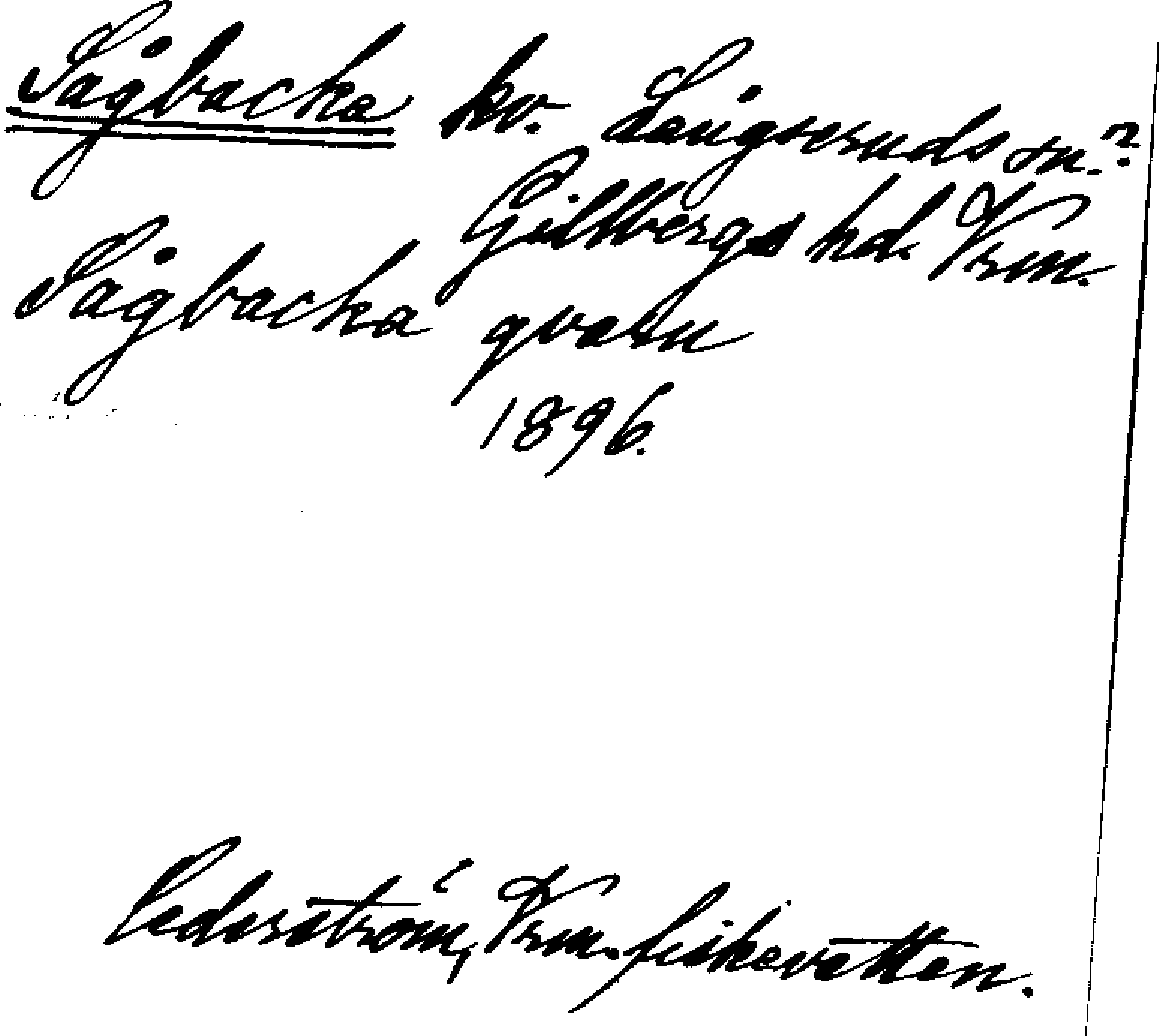 Sågbacka kv. Långseruds sn.?
Gillbergs hd. Vrm.
Sågbacka qvarn
1896.
Cederström, Vrm. fiskevatten.